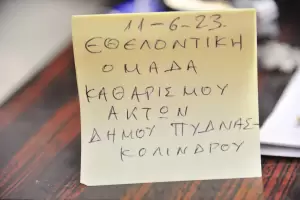 11-6-23.
ΕΘΕΛΟΝΤΙΚΗ
ΟΜΑΔΑ
ΚΑΘΑΡΙΣΜΟΥ
ΑΚΤΩΝ
ΔΗΜΟΥ ΠΥΔΝΑΣ-
ΚΟΛΙΝΔΡΟΥ